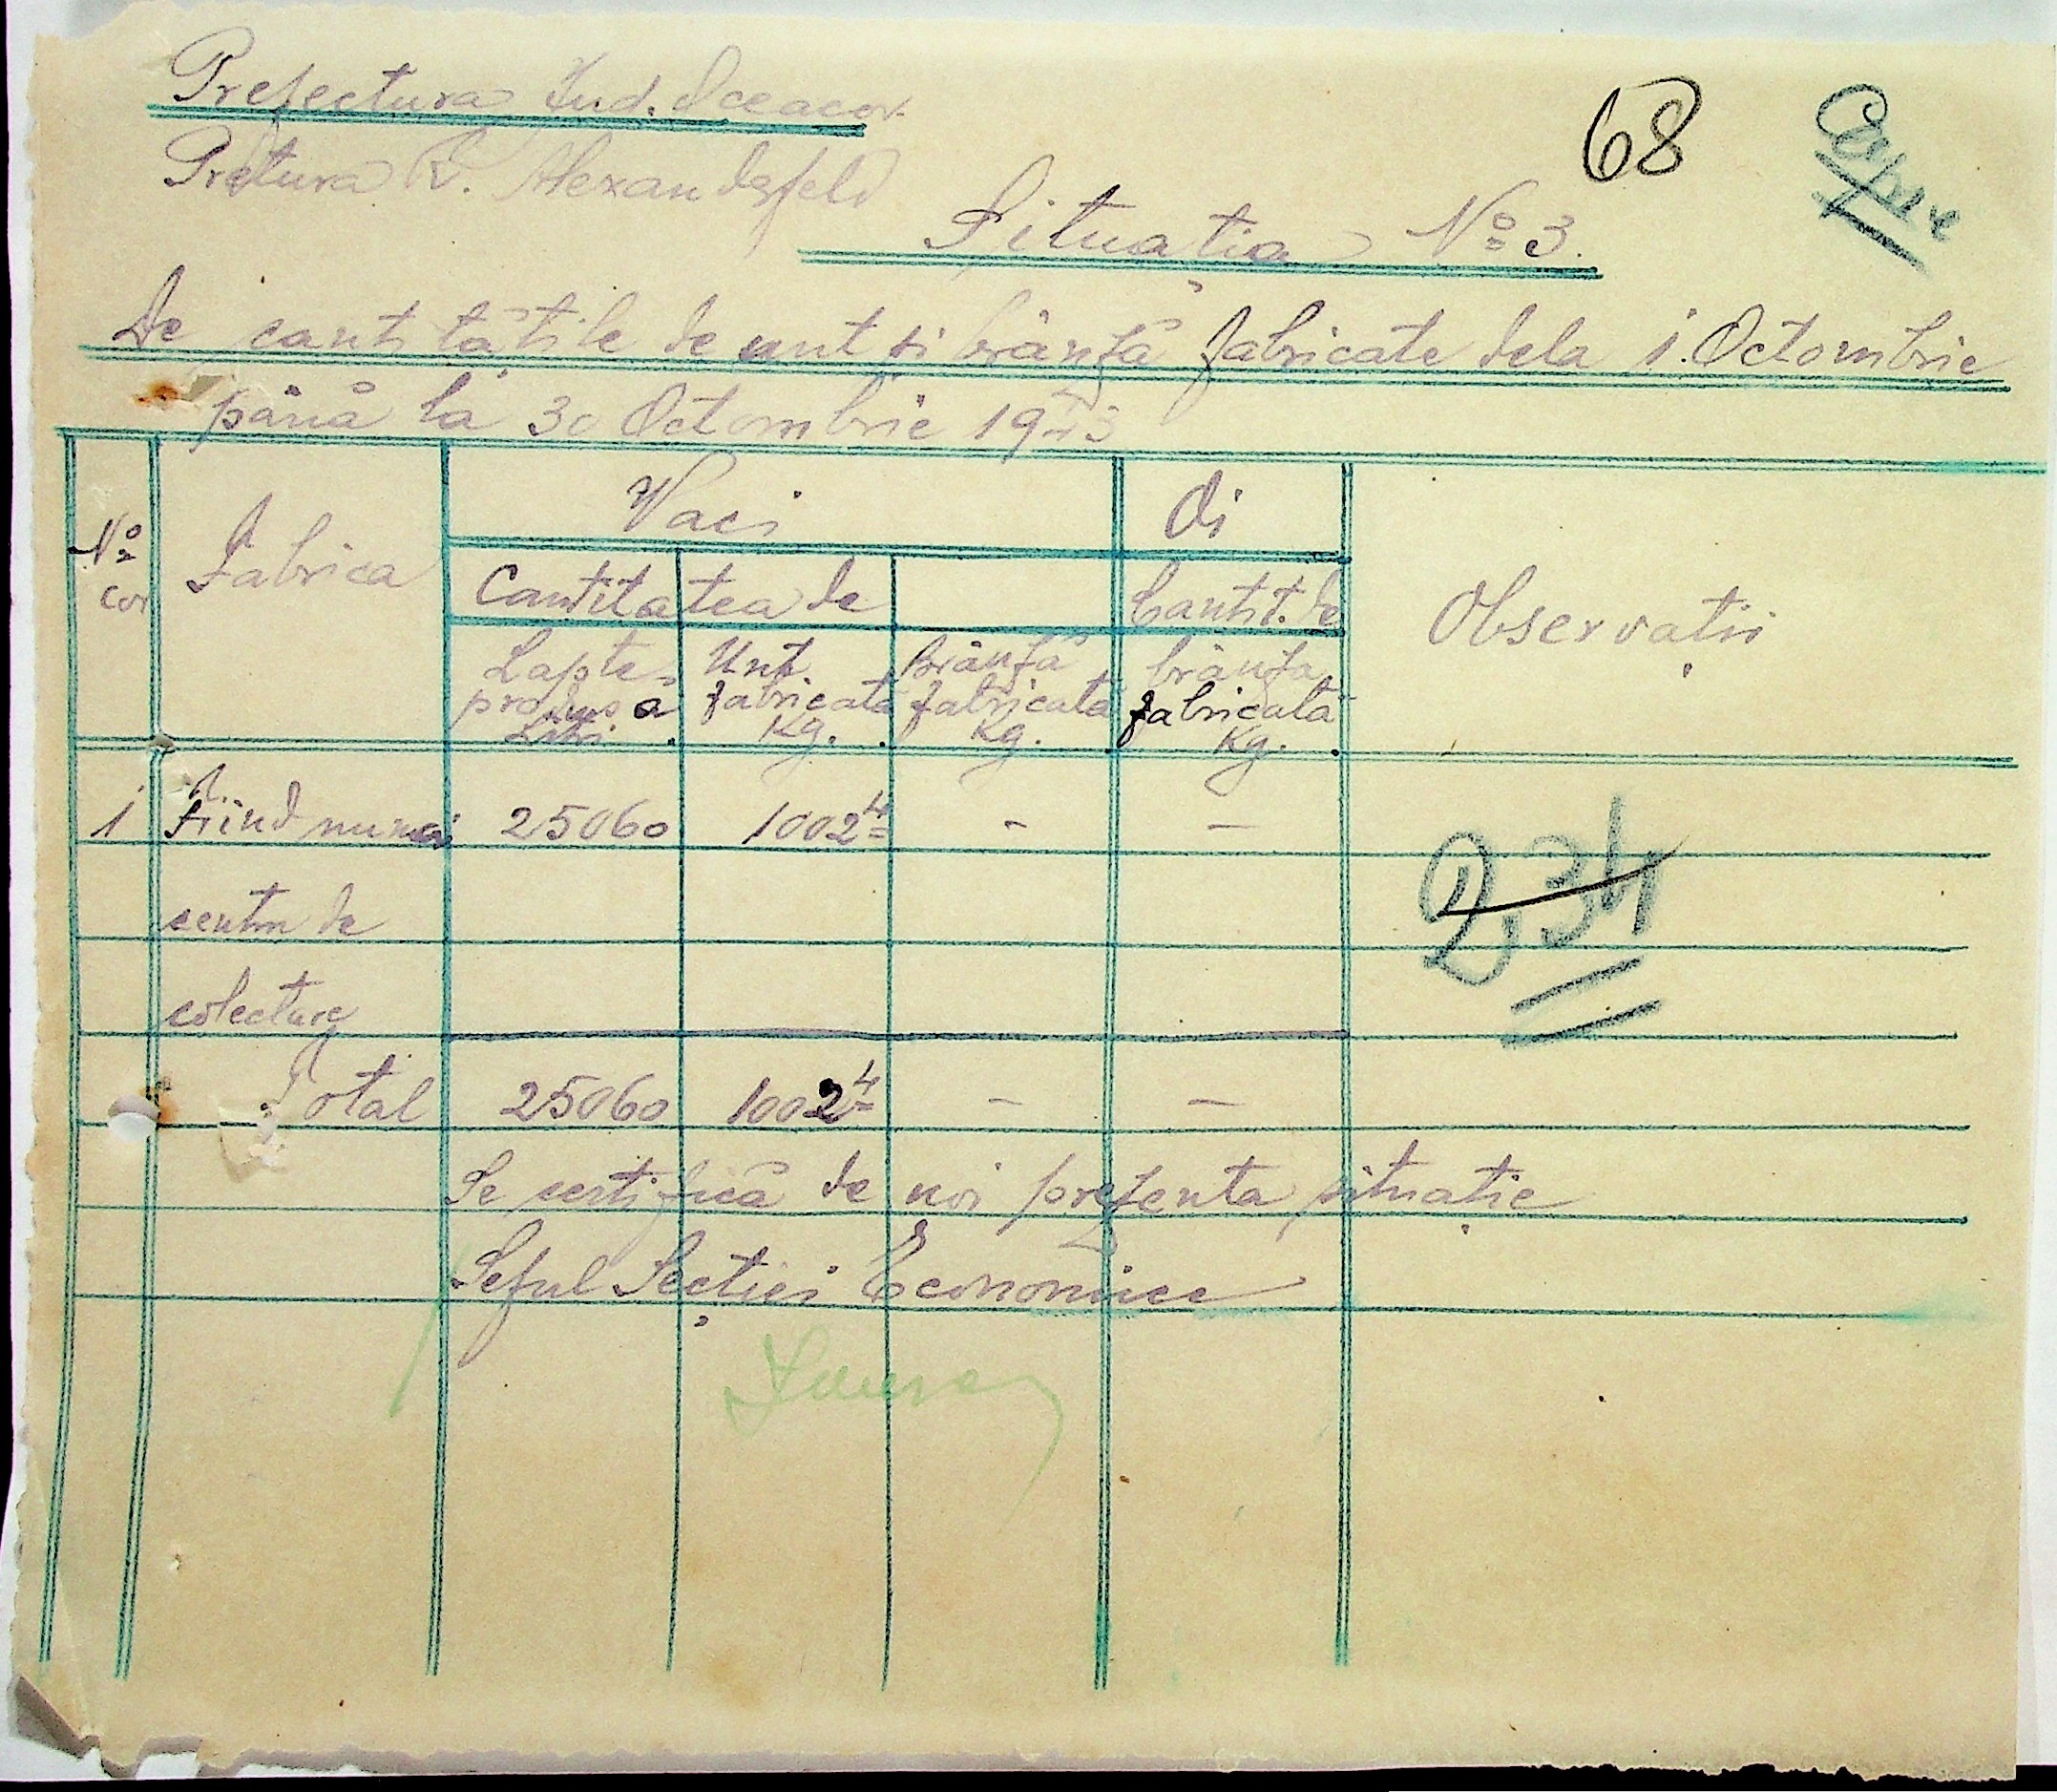 Prefectura Jud. Oceacov.
Pretura R. Alexanderfeld
68
Situația No 3.
De cantitățile de unt și brânză fabricate dela 1. Octombrie
până la 30 Octombrie 1943
No cor
Fabrica
Vaci
Oi
Observații
Cantitatea de
Cantit. de
Lapte produsă Litri.
Unt. fabricată Kg.
Brânză fabricată Kg.
brânză fabricată Kg.
1 Fiind numai 25060 1002 4 - -
centru de
colectare
2,34
Total 25060 1002 4 - -
Se certifică de noi prezenta situație
Șeful Secției Economice